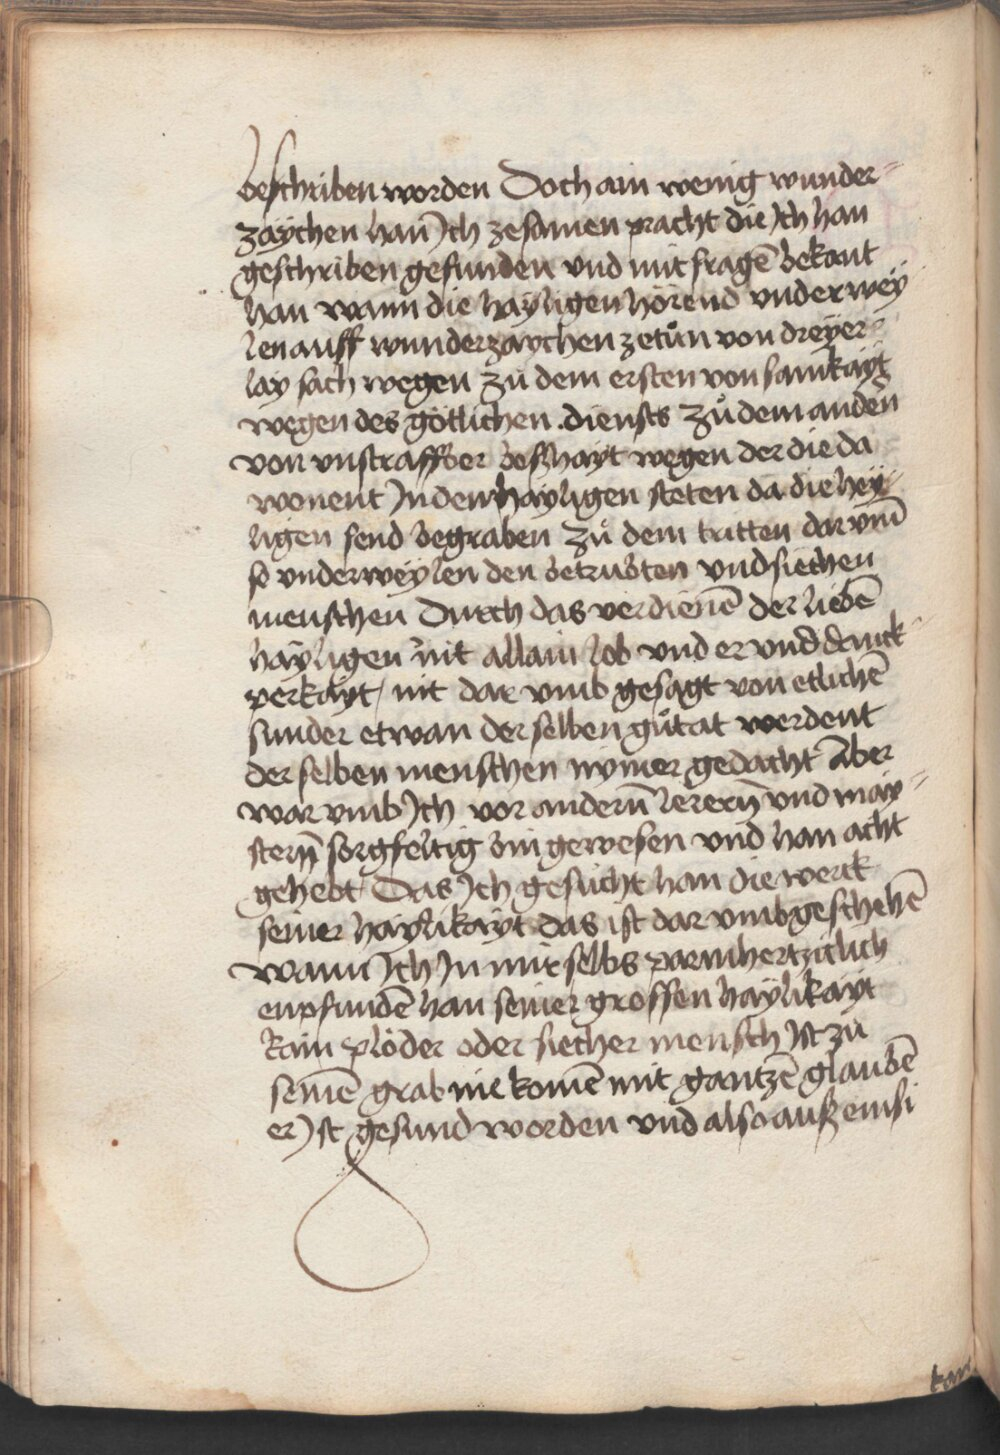 beschriben worden Doch ain wenig wunder-
zaychen han Ich zesamen pracht die Ich han
geschriben gefunden vnd mit fragē bekant
han wann die hayligen hörend vnder wey
len auff wunderzaychen zetůn von dreyer-
lay sach wegen Zů dem ersten von samkayt
wegen des götlichen diensts Zů dem andeñ
von vnstraffber boßhayt wegen der die da
wonent In den hayligen steten da die hey-
ligen send begraben Zů dem tritten dar vm̄
so vnderweylen den betrubten vnd siechen
menschen Durch das verdienē der liebē
hayligen nit allain lob vnd er vnd danck
perkayt nit dar vmb gesagt von etlichē
sunder etwan der selben gůtat werdent
der selben menschen nymer gedacht Aber
war vmb Ich vor andern̄ lerern̄ vnd may-
stern̄ sorgfeltig bin gewesen vnd han acht
gehebt Das Ich gesucht han die werck
seiner haylikayt das ist dar vmb geschehē
wann Ich In mir selbs parmhertziclich
enpfundē han seiner grossen haylikayt
kain plöder oder siecher mensch Ist zu
seinē grab nie komē mit gantzē glaubē
er Ist gesund worden vnd also auß einsi